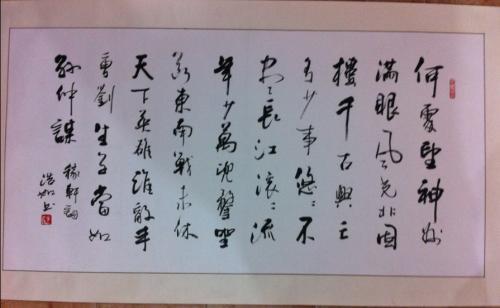 何處望神州
滿眼風光北固
樓千古興亡
多少事悠〻不
盡長江滾〻流
年少萬兜鍪坐
斷東南戰未休
天下英雄誰敵手
曹劉生子當如
孫仲謀
稼軒詞
浩如書